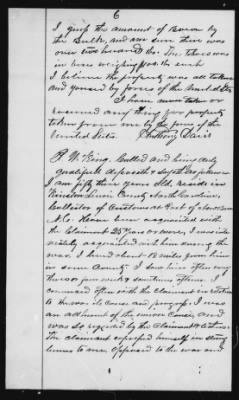 6
I give the amount of Bacon by
the bulk, and am sure there was
over two thousand lbs. The there was
in hams weighing for the such
I believe the property was all taken
and youned by forces of the United States
I have never taken or
received any thing for property
taken from me by the forces of the
United States. Anthony Davis
R. W. King. Called and being duly
qualified deposeth & sayeth as follows
I am fifty three years old, reside in
Kinston Lenoir County North Carolina,
Collector of Customs at Port of
N.C. Have been acquainted with
the Claimant 25 years or more, I was inti-
mately acquainted with him during the
war. I lived about 12 miles from him
in same County I saw him often
some times oftener. I
conversed often with the Claimant in relation
to the war its causes and progress. I was
an adherent of the union cause, and
was so regarded by the Claimant & others.
The claimant expressed himself in strong
terms to me opposed to the war and